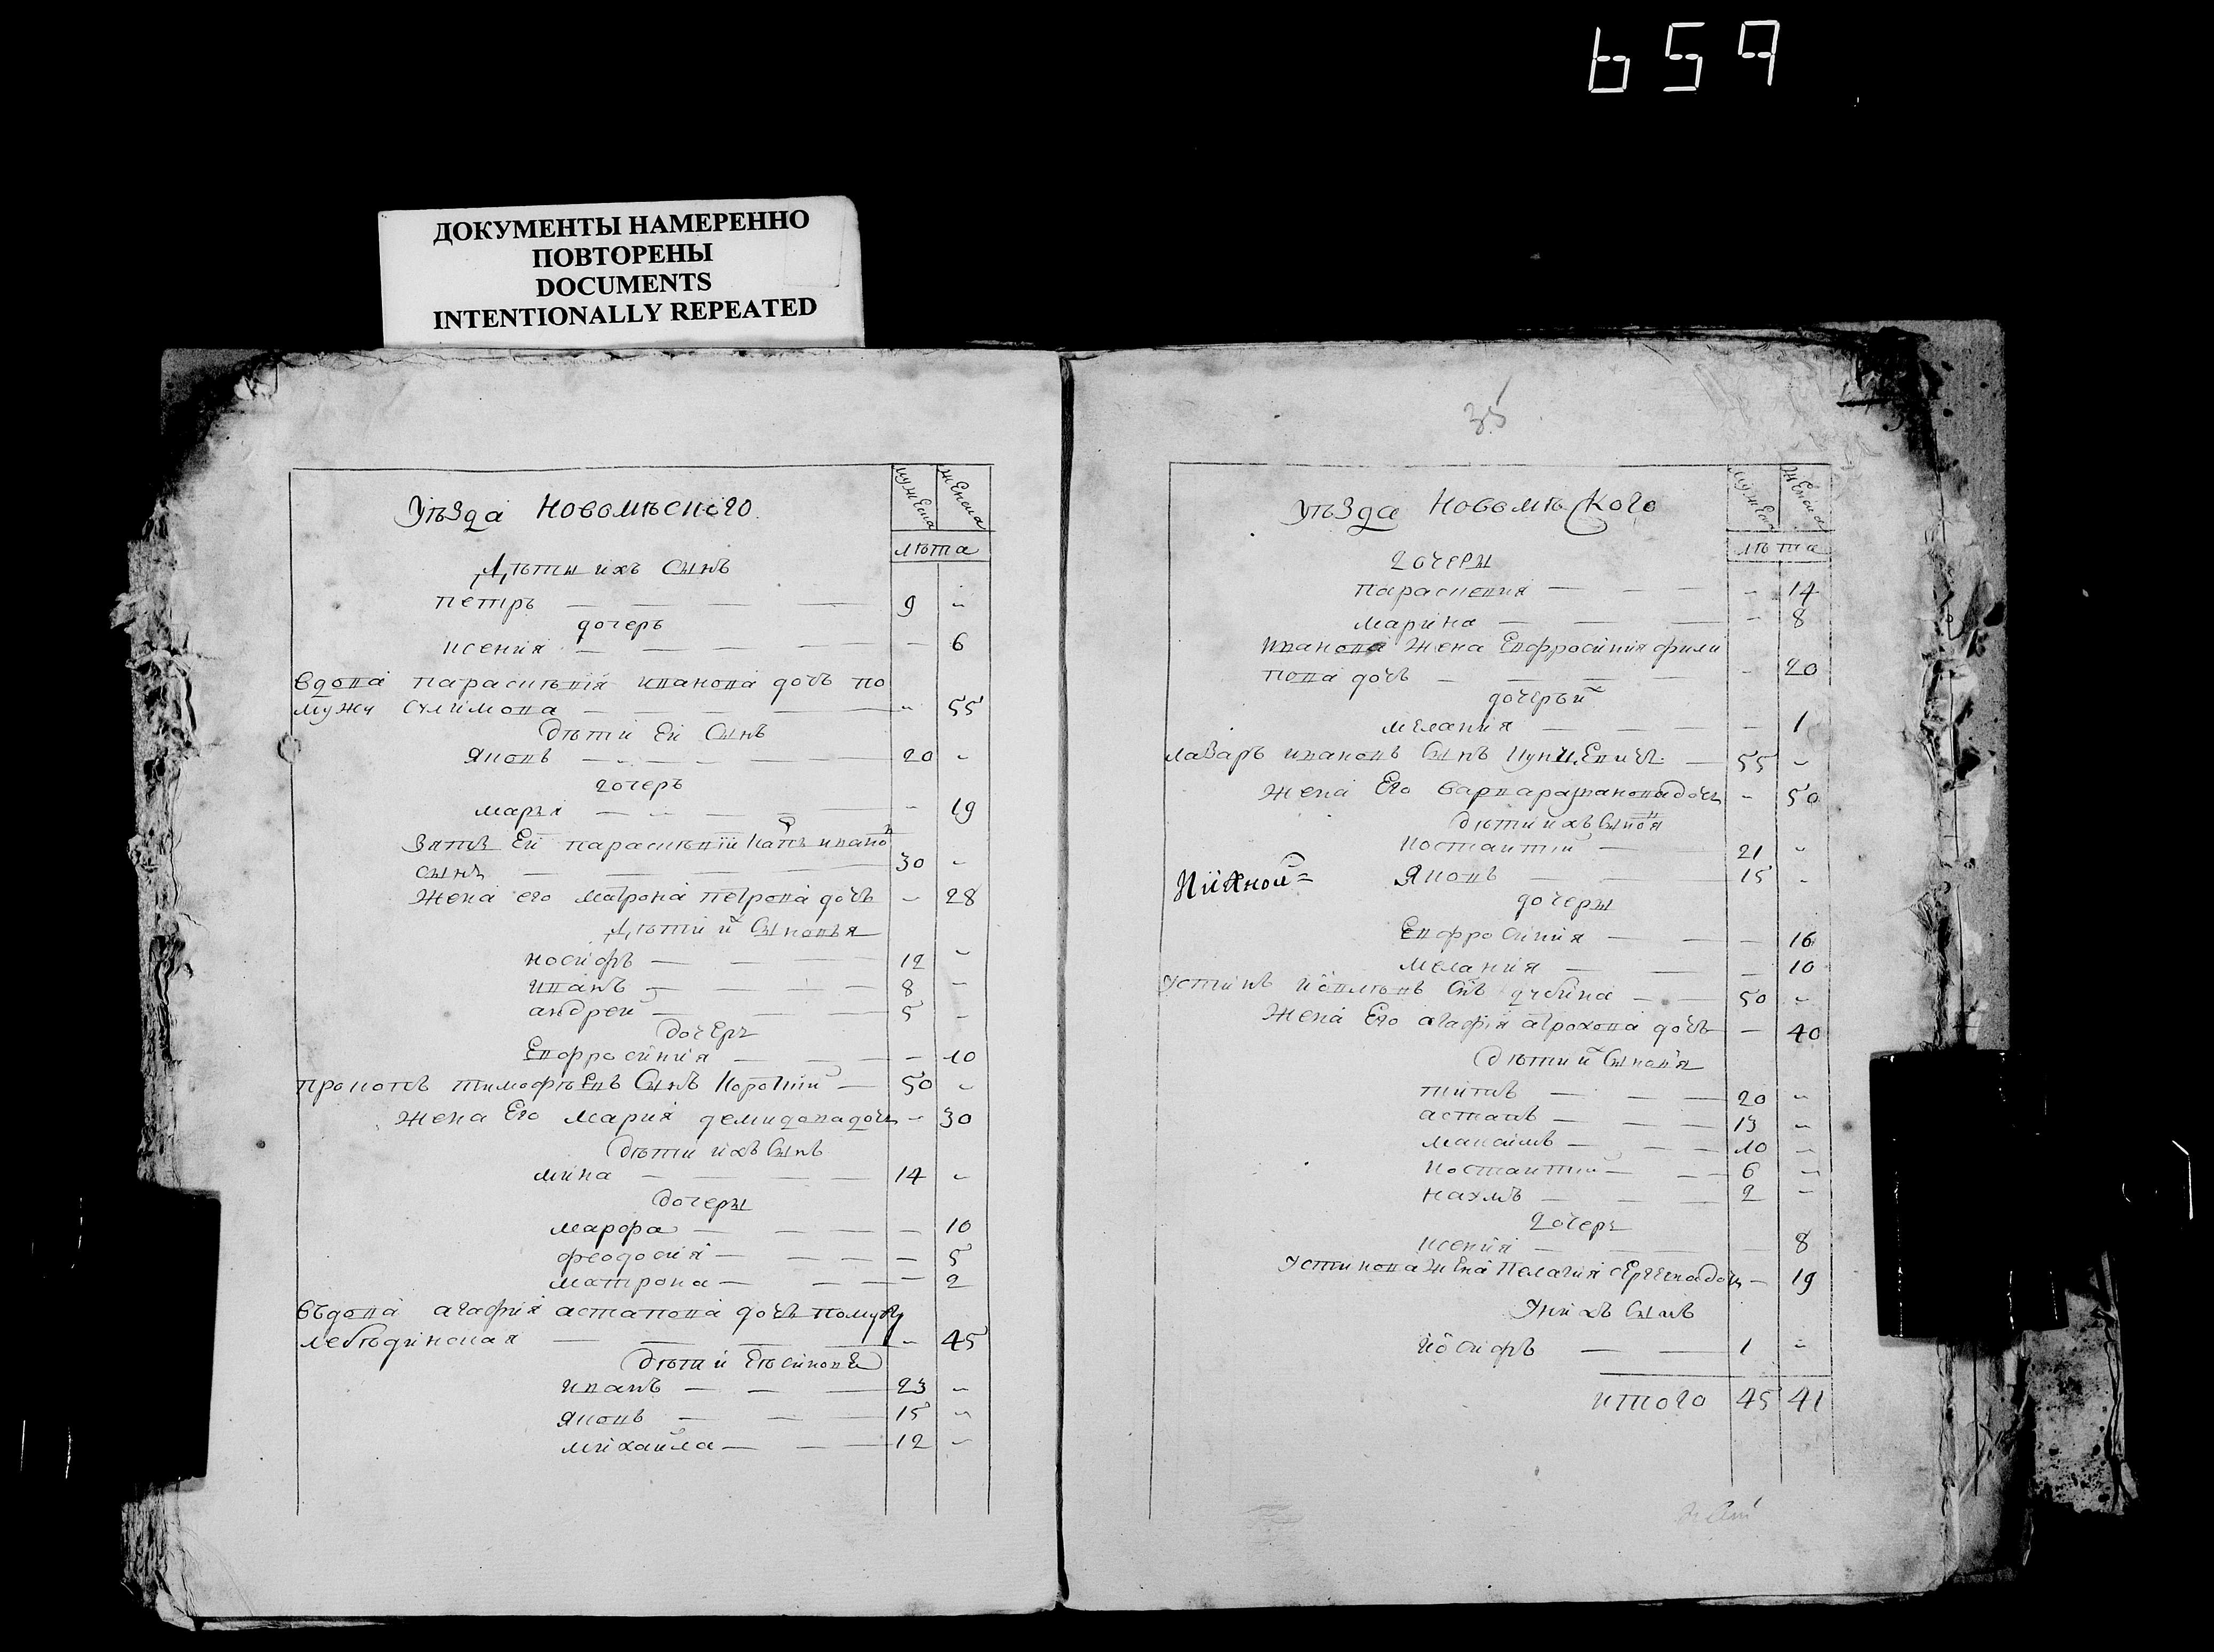 659
ДОКУМЕНТЫ НАМЕРЕННО
ПОВТОРЕНЫ
DOCUMENTS
INTENTIONALLY REPEATED
Уѣзда Новомѣского
мужеска женска
лѣта
Дѣты ихъ сынъ
петръ 9 -
дочерь
ксения - 6
вдова парасковия иванова дочь по
мужу - 55
дѣти ей сынъ
яковъ 20 -
дочерь
марья - 19
зять ей парасковии иванов
сынъ 30 -
жена его матрона петрова дочь - 28
дѣти и сыновья
иосифъ 12 -
иванъ 8 -
андрей 5 -
дочерь
Евфросиния - 10
прокопъ тимофѣевъ сынъ 50 -
жена Его мария демидова дочь - 30
дѣти ихъ сынъ
мина 14 -
дочеры
марфа - 10
феодосия - 5
матрона - 2
въдова агафия астапова дочь помужу
лебѣдинская - 45
дѣти
иванъ 23 -
яковъ 15 -
михайла 12 -
35
Уѣзда Новомѣского
мужеска женска
лѣта
дочеры
парасковия - 14
марина - 8
иванова жена Евфросиния фили
пова дочь - 20
дочерь и
мелания - 1
лаваръ ивановъ сынъ 55 -
жена Его варвара иванова дочь - 50
дѣти ихъ сыновя
костантий 21 -
яковъ 15 -
дочеры
Евфросиния - 16
мелания - 10
устинъ сынъ 50 -
жена Его агафия дочь - 40
дѣти и сыновя
титъ 20 -
астапъ 13 -
максимъ 10 -
костантий 6 -
нахмъ 2 -
дочерь
ксения - 8
устинова жена пелагия дочь - 19
у них сынъ
иосифъ 1 -
итого 45 41